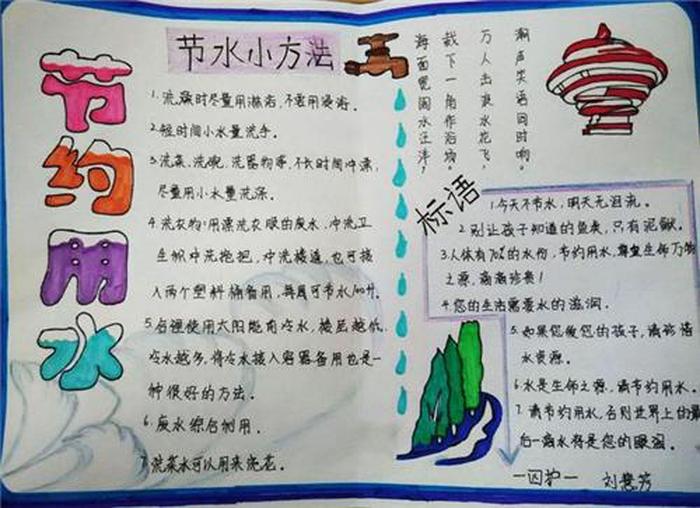 节约用水
节水小方法
1.洗澡时尽量用淋浴，不要用浸浴。
2.短时间小水量洗手。
3.洗菜、洗碗、洗器物等，不长时间冲涤，
尽量用小水量洗涤。
4.洗衣物：用漂洗衣服的废水，冲洗卫
生帜冲洗拖把，冲洗楼道，也可接
入两个塑料桶备用，每周可节水100升。
5.有的使用太阳能有冷水，楼层越低，
冷水越多，将冷水接入容器备用也是一
种很好的方法。
6.废水综合利用。
7.洗菜水可以用来浇花。
潮声笑语同时响。
万人击浪水花飞，
截下一角作浴场。
海面宽阔水汪洋，
标语
1.今天不节水，明天无泪流。
2.别让孩子知道的鱼类，只有泥鳅。
3.人体有70%的水份，节约用水，尊重生命万物
之源，滴滴珍贵！
4.您的生活需要水的滋润。
5.如果您爱您的孩子，请珍惜
水资源。
6.水是生命之源，请节约用水。
7.请节约用水，否则世界上的最
后一滴水将是您的眼泪。
刘慧芳